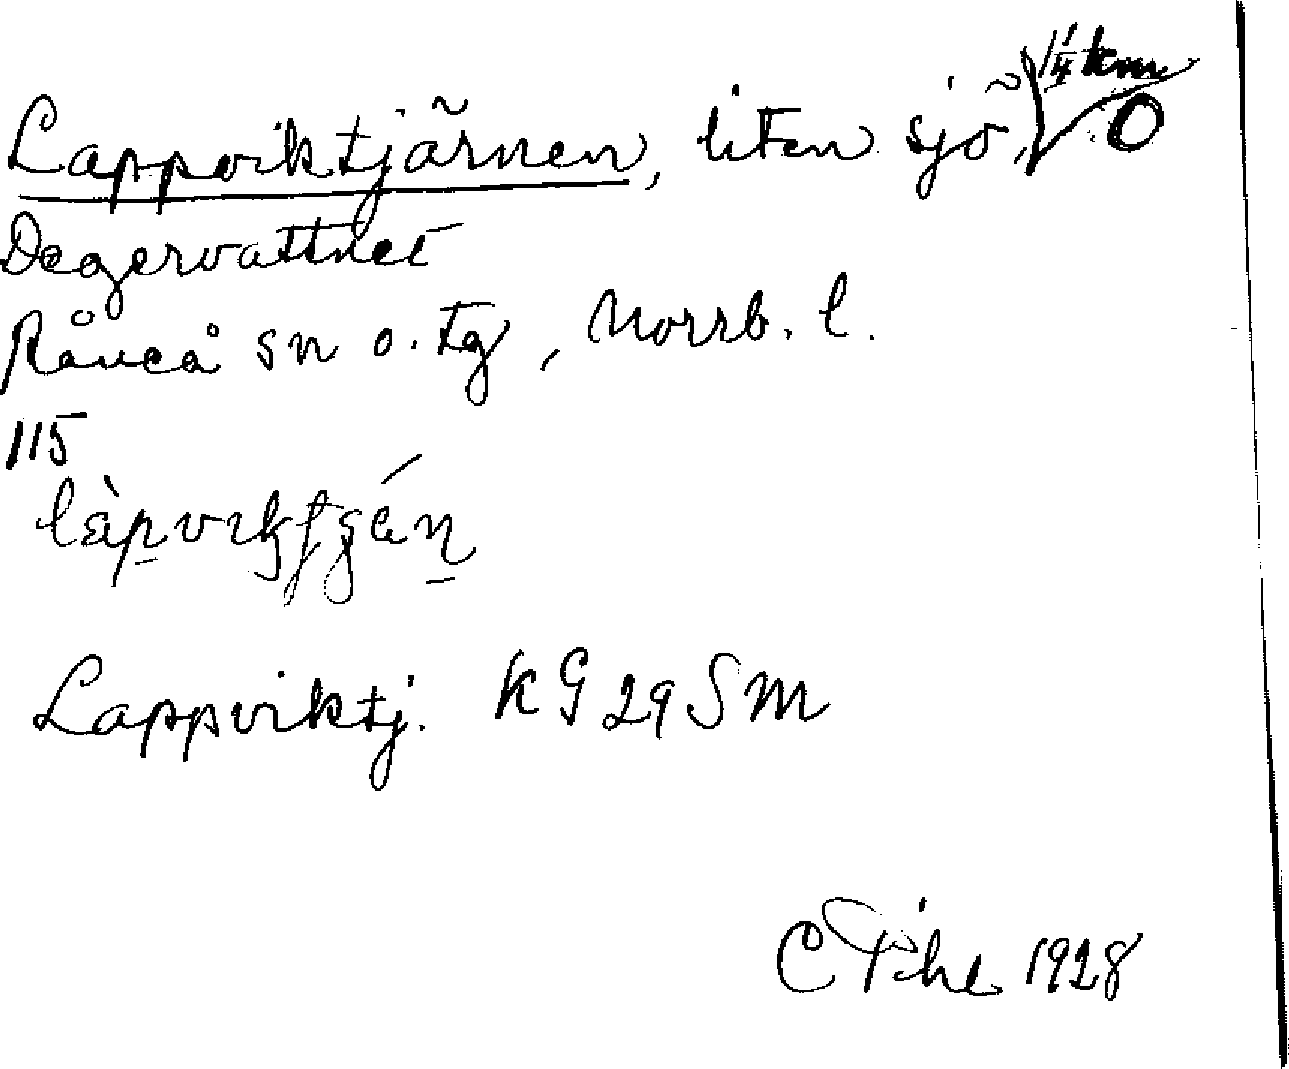 Lappviktjärnen, liten sjö, 1 1/4 km O
Degervattnet
Råneå sn o. tg, Norrb. l.
115
Lappviktj. KG 29 SM
C Pihl 1928